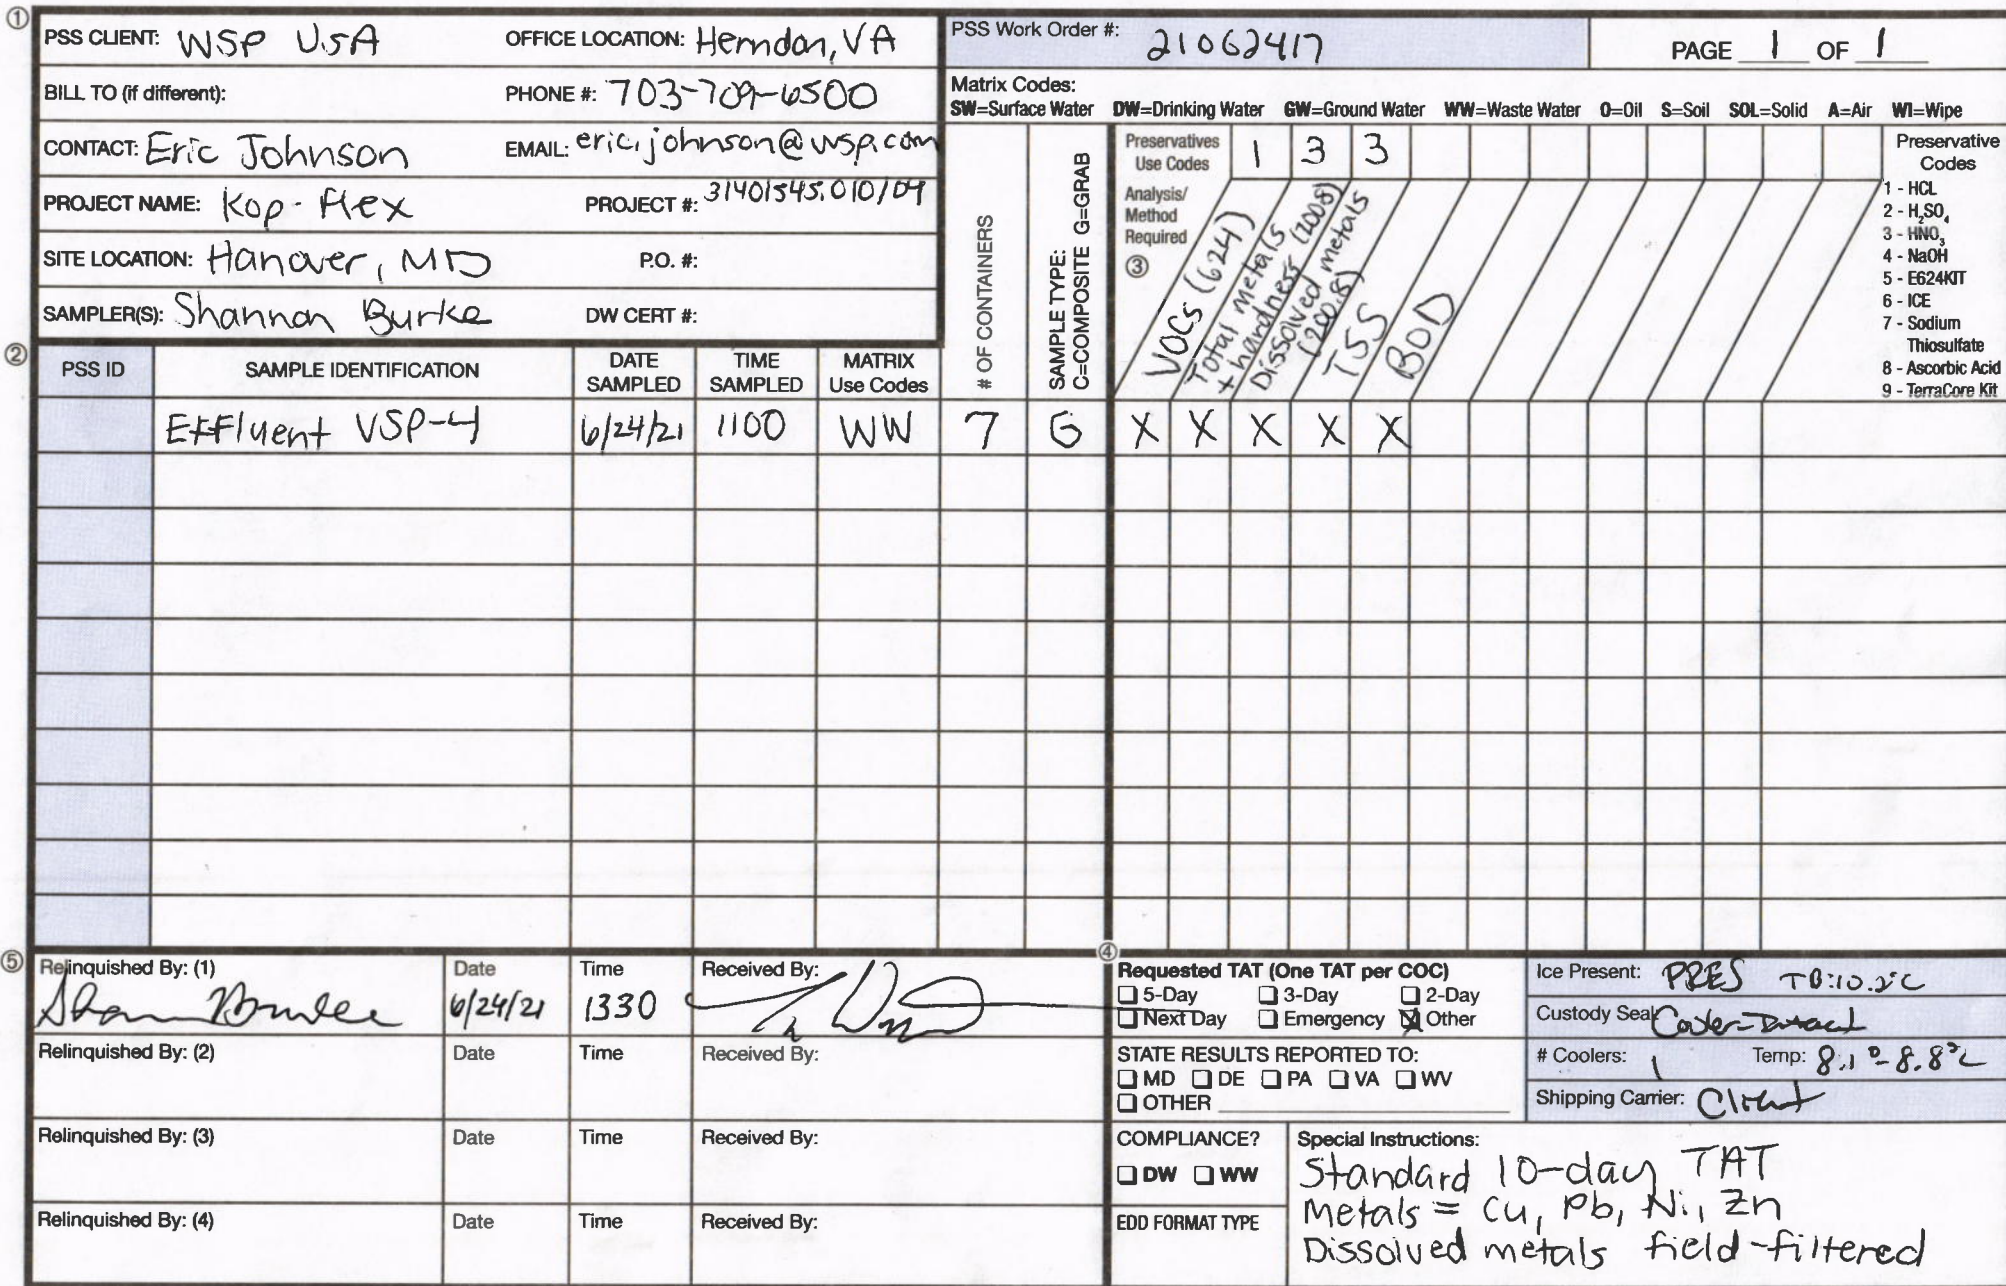 ①
PSS CLIENT: WSP USA OFFICE LOCATION: Herndon, VA
BILL TO (if different): PHONE #: 703-709-6500
CONTACT: Eric Johnson EMAIL: eric.johnson@wsp.com
PROJECT NAME: Kop-flex PROJECT #: 31401545.010/04
SITE LOCATION: Hanover, MD P.O. #:
SAMPLER(S): Shannon Burke DW CERT #:
PSS Work Order #: 21062417
PAGE 1 OF 1
Matrix Codes:
SW=Surface Water DW=Drinking Water GW=Ground Water WW=Waste Water O=Oil S=Soil SOL=Solid A=Air WI=Wipe
# OF CONTAINERS
SAMPLE TYPE:
C=COMPOSITE G=GRAB
Preservatives
Use Codes
1 3 3
Analysis/
Method
Required
③
VOCs (624)
Total metals
+ hardness (200.8)
Dissolved metals
(200.8)
TSS
BOD
Preservative
Codes
1 - HCL
2 - H₂SO₄
3 - HNO₃
4 - NaOH
5 - E624KIT
6 - ICE
7 - Sodium
Thiosulfate
8 - Ascorbic Acid
9 - TerraCore Kit
②
PSS ID SAMPLE IDENTIFICATION DATE SAMPLED TIME SAMPLED MATRIX Use Codes
Effluent VSP-4 6/24/21 1100 WW 7 G X X X X X
⑤
Relinquished By: (1) Date Time Received By:
6/24/21 1330
Relinquished By: (2) Date Time Received By:
Relinquished By: (3) Date Time Received By:
Relinquished By: (4) Date Time Received By:
④
Requested TAT (One TAT per COC)
☐ 5-Day ☐ 3-Day ☐ 2-Day
☐ Next Day ☐ Emergency ☒ Other
STATE RESULTS REPORTED TO:
☐ MD ☐ DE ☐ PA ☐ VA ☐ WV
☐ OTHER
COMPLIANCE?
☐ DW ☐ WW
EDD FORMAT TYPE
Ice Present: PRES TB:10.2°C
Custody Seal: Cooler-Intact
# Coolers: 1 Temp: 8.1°-8.8°C
Shipping Carrier: Client
Special Instructions:
Standard 10-day TAT
Metals = Cu, Pb, Ni, Zn
Dissolved metals field-filtered